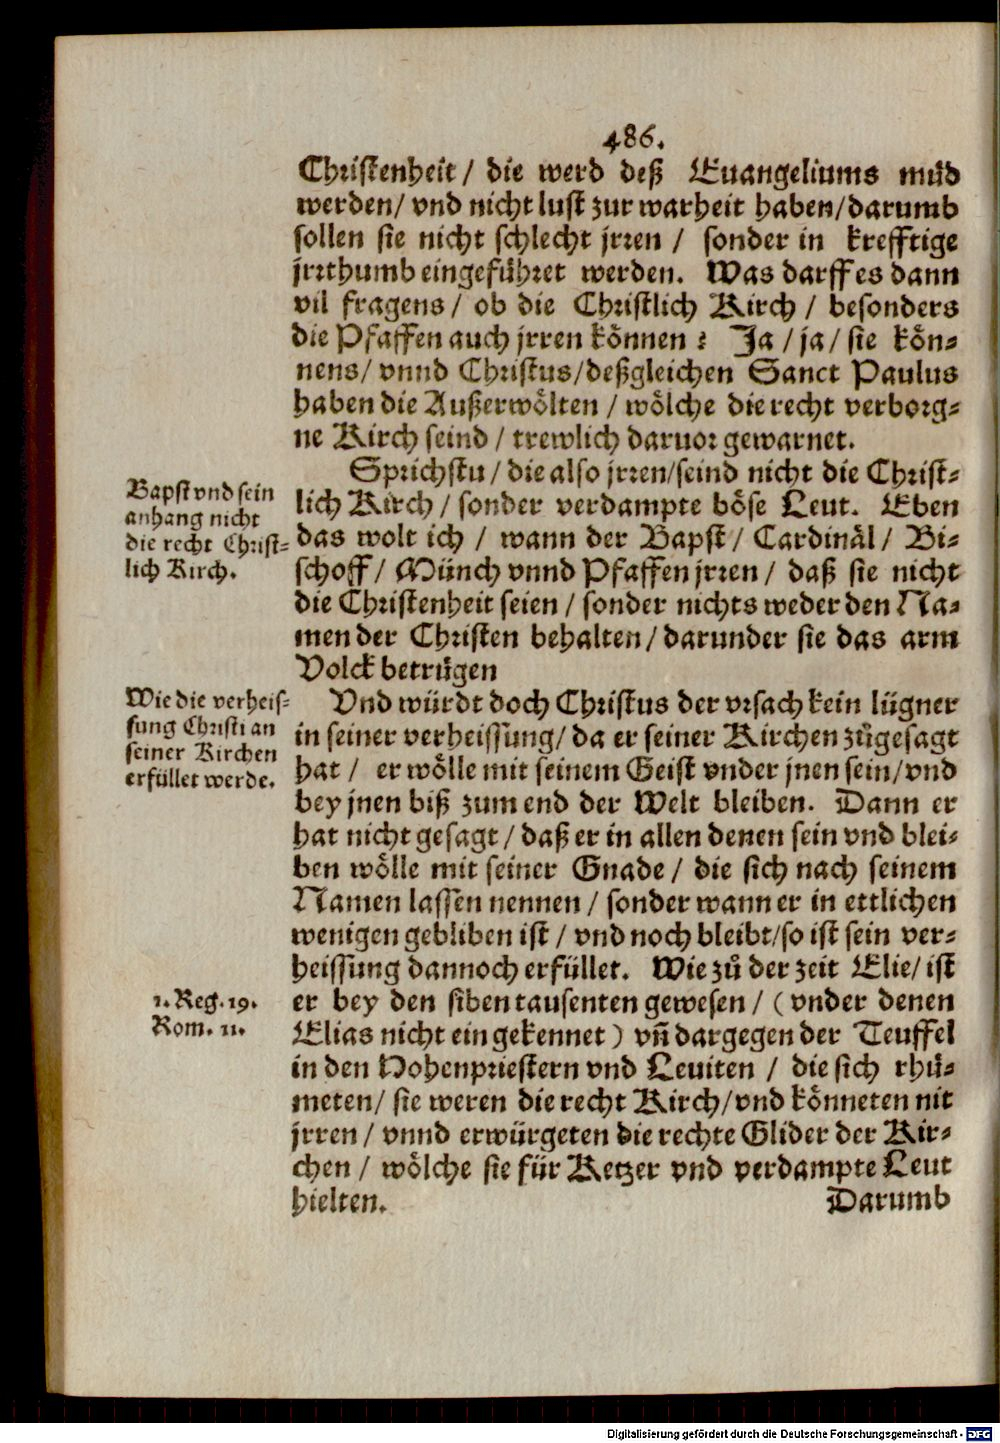 486.
Christenheit / die werd deß Euangeliums müd
werden / vnd nicht lust zur warheit haben / darumb
sollen sie nicht schlecht jrren / sonder in krefftige
jrrthumb eingeführet werden. Was darff es dann
vil fragens / ob die Christlich Kirch / besonders
die Pfaffen auch jrren können? Ja / ja / sie kön-
nens / vnnd Christus / deßgleichen Sanct Paulus
haben die Außerwölten / wölche die recht verborg-
ne Kirch seind / trewlich daruor gewarnet.
Sprichstu / die also jrren / seind nicht die Christ-
lich Kirch / sonder verdampte böse Leut. Eben
das wolt ich / wann der Bapst / Cardinäl / Bi-
schoff / Münch vnnd Pfaffen jrren / daß sie nicht
die Christenheit seien / sonder nichts weder den Na-
men der Christen behalten / darunder sie das arm
Volck betrügen
Bapst vnd sein
anhang nicht
die recht Christ-
lich Kirch.
Vnd würdt doch Christus der vrsach kein lügner
in seiner verheissung / da er seiner Kirchen zůgesagt
hat / er wölle mit seinem Geist vnder jnen sein / vnd
bey jnen biß zum end der Welt bleiben. Dann er
hat nicht gesagt / daß er in allen denen sein vnd blei-
ben wölle mit seiner Gnade / die sich nach seinem
Namen lassen nennen / sonder wann er in ettlichen
wenigen gebliben ist / vnd noch bleibt / so ist sein ver-
heissung dannoch erfüllet. Wie zů der zeit Elie / ist
er bey den siben tausenten gewesen / (vnder denen
Elias nicht ein gekennet) vn̄ dargegen der Teuffel
in den Hohenpriestern vnd Leuiten / die sich rhü-
meten / sie weren die recht Kirch / vnd könneten nit
jrren / vnnd erwürgeten die rechte Glider der Kir-
chen / wölche sie für Ketzer vnd verdampte Leut
hielten.
Wie die verheis-
sung Christi an
seiner Kirchen
erfüllet werde.
1. Reg. 19.
Rom. 11.
Darumb
Digitalisierung gefördert durch die Deutsche Forschungsgemeinschaft - DFG